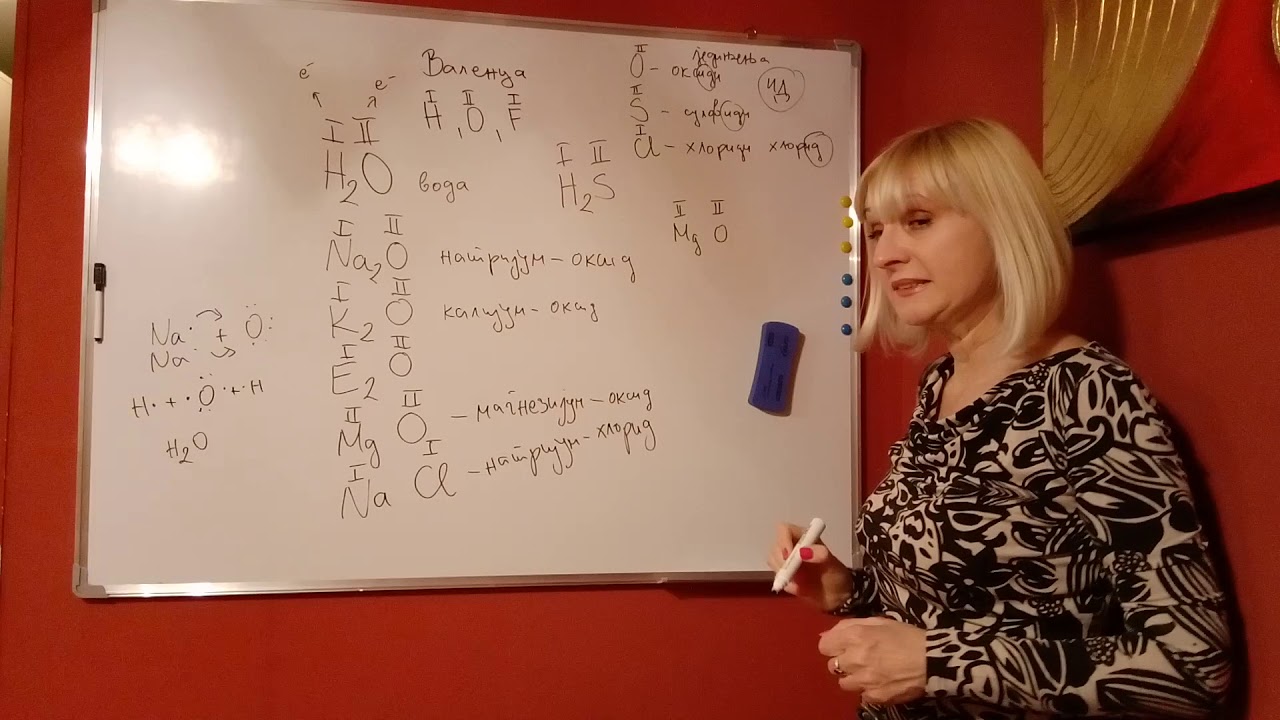 e⁻ e⁻
Валенца
I II I
H, O, F
I II
H₂O вода
I II
Na₂O натријум-оксид
I II
K₂O калијум-оксид
I II
E₂O
II II
MgO – магнезијум-оксид
I I
NaCl – натријум-хлорид
Na· + Ö:
Na·
H· + ·Ö· + ·H
H₂O
I II
H₂S
једињења
II
O – оксиди
ИД
II
S – сулфиди
I
Cl – хлориди хлорид
II II
Mg O